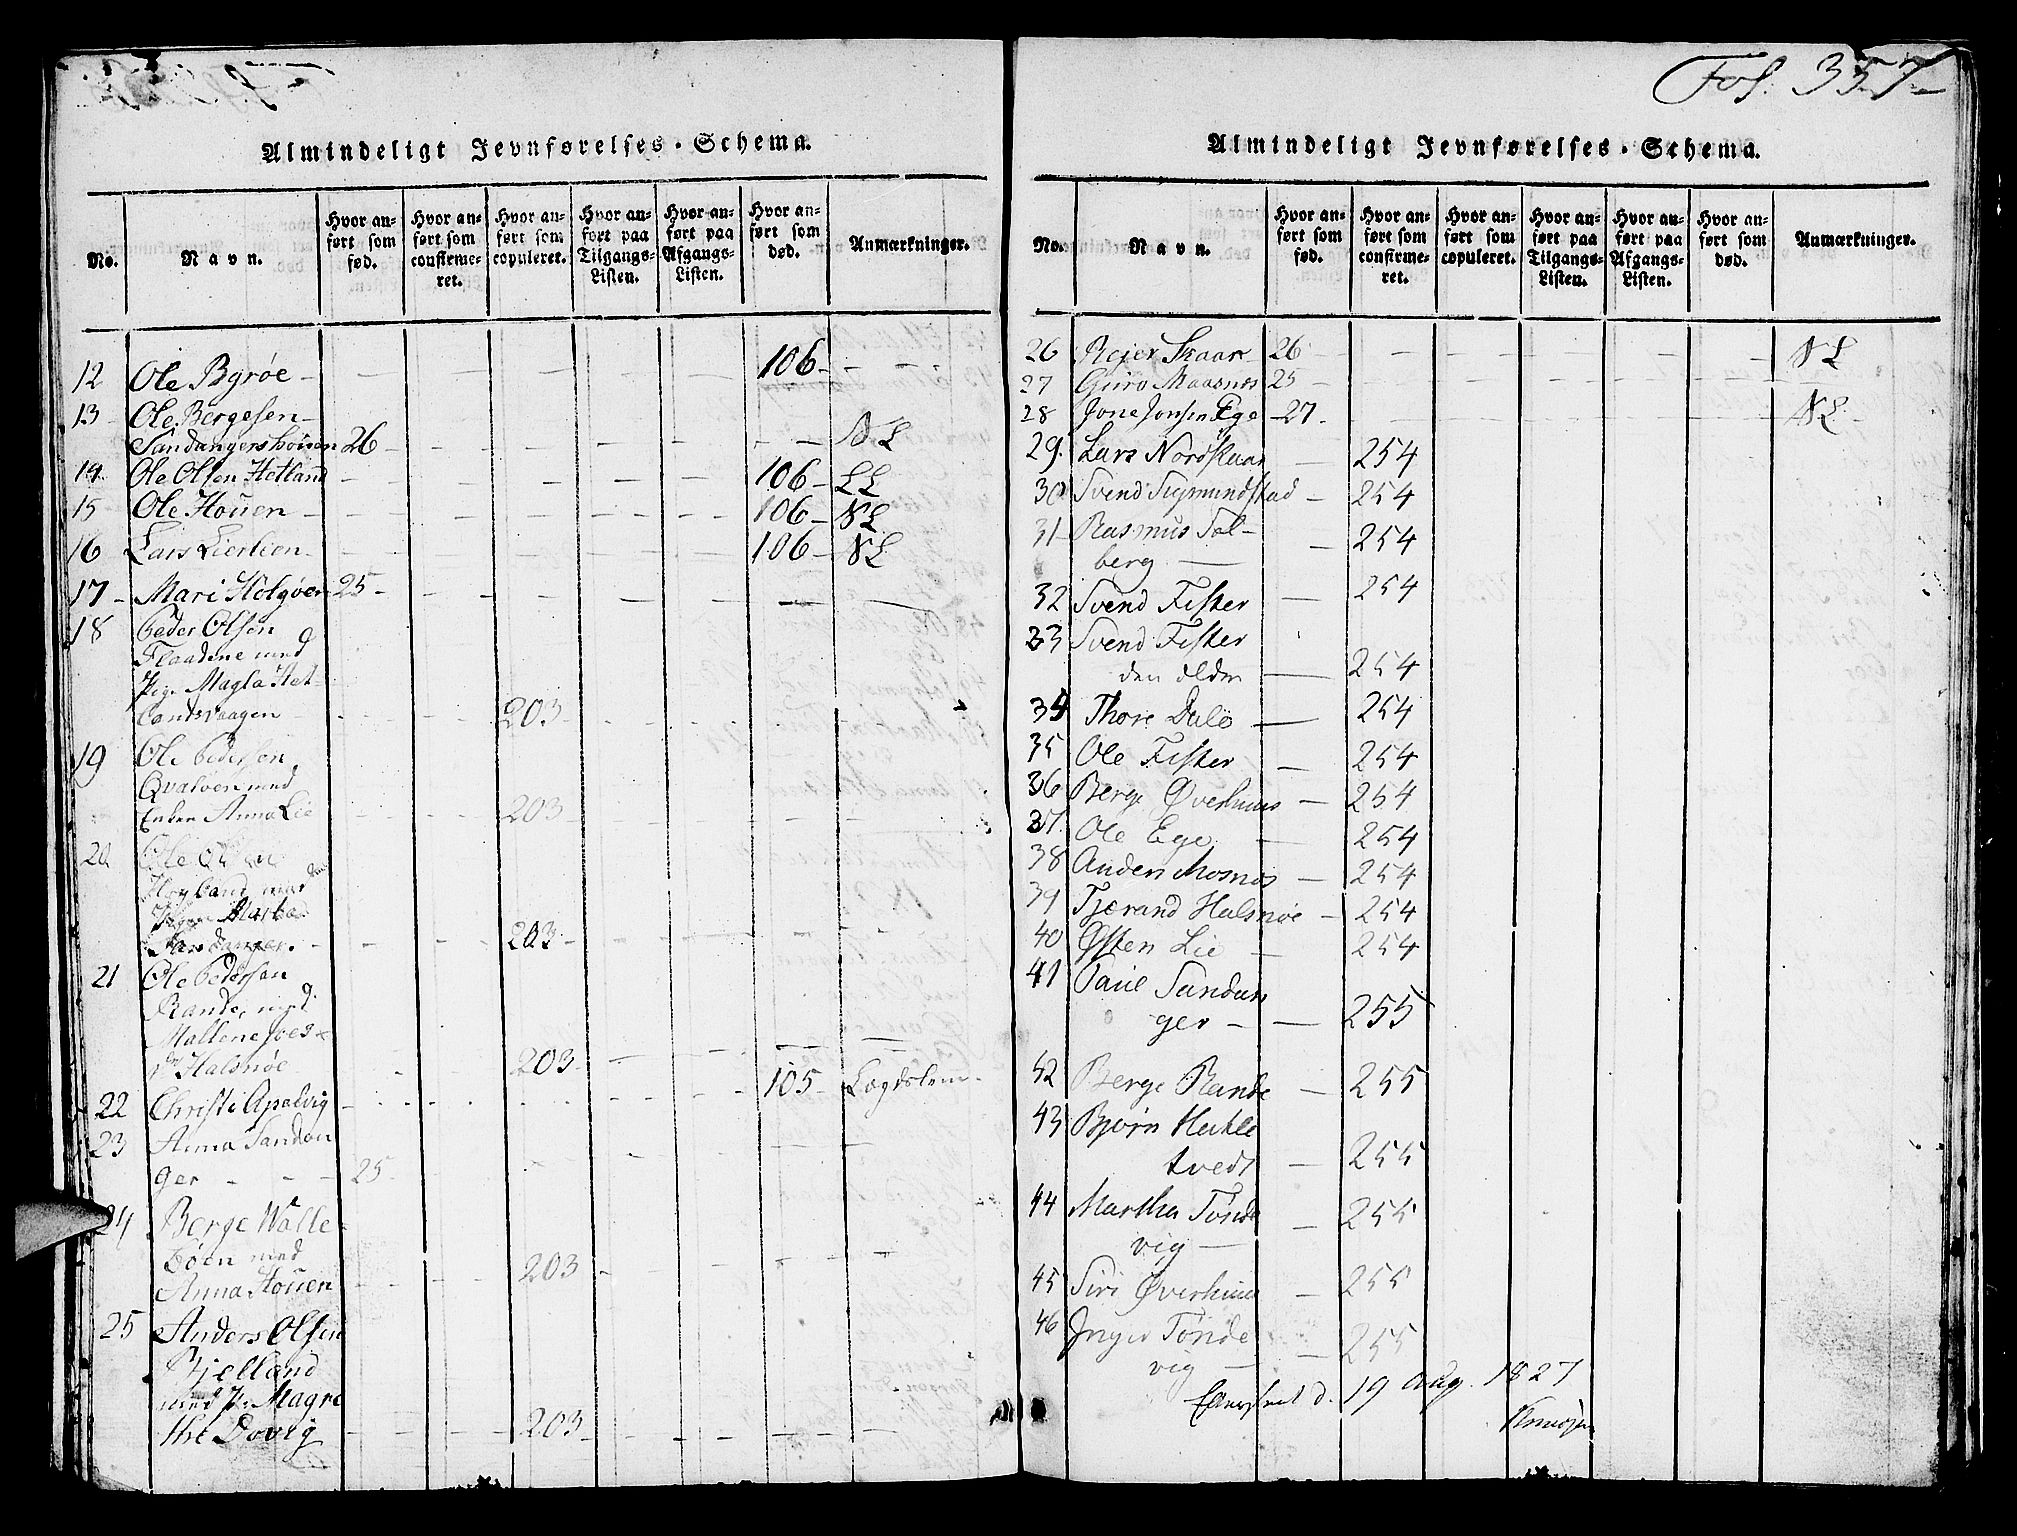 Almindeligt Jevnførelses-Schema.
No.
Navn.
Hvor anført som fød.
Hvor anført som confirmeret.
Hvor anført som copuleret.
Hvor anført paa Tilgangs-Listen.
Hvor anført paa Afgangs-Listen.
Hvor anført som død.
Anmærkninger.
12 Ole Byrøe 106
13 Ole Bergesen
Sandangersholmen 26
14 Ole Olsen Hetland 106 LL
15 Ole Houen 106
16 Lars Lierlien 106
17 Mari Holgøen 25
18 Peder Olsen
Flaadene med
Pig. Magla Het
landsvaagen 203
19 Ole Pedersen
Qvaløen med
Enken Anna Lie 203
20 Ole Olsen
Høyland med
Pigen Martha
Sandanger 203
21 Ole Pedersen
Rande, med
Mallene
Halsnøe 203
22 Christi Apalvig 105 Lægdslem
23 Anna Sandan
ger 25
24 Berge Walle
bøen med
Anna Houen 203
25 Anders Olsen
Bjelland
med P. Magre
the Dovig 203
Fol. 357
Almindeligt Jevnførelses-Schema.
No.
Navn.
Hvor anført som fød.
Hvor anført som confirmeret.
Hvor anført som copuleret.
Hvor anført paa Tilgangs-Listen.
Hvor anført paa Afgangs-Listen.
Hvor anført som død.
Anmærkninger.
26 Rejer Skaar 26
27 Guro Maasnes 25
28 Jone Jonsen Ege 27
29 Lars Nordskaar 254
30 Svend Sigmundstad 254
31 Rasmus Sol-
berg 254
32 Svend Fister 254
33 Svend Fister
den ældre 254
34 Thore Dale 254
35 Ole Fister 254
36 Berge Øverhuus 254
37 Ole Ege 254
38 Anders Mosnes 254
39 Tjerand Halsnøe 254
40 Østen Lie 254
41 Paul Sandan
ger 255
42 Berge Rande 255
43 Bjørn Hetle
tvedt 255
44 Martha Tønde
vig 255
45 Siri Øverhuus 255
46 Inger Tønde
vig 255
d. 19 Aug. 1827